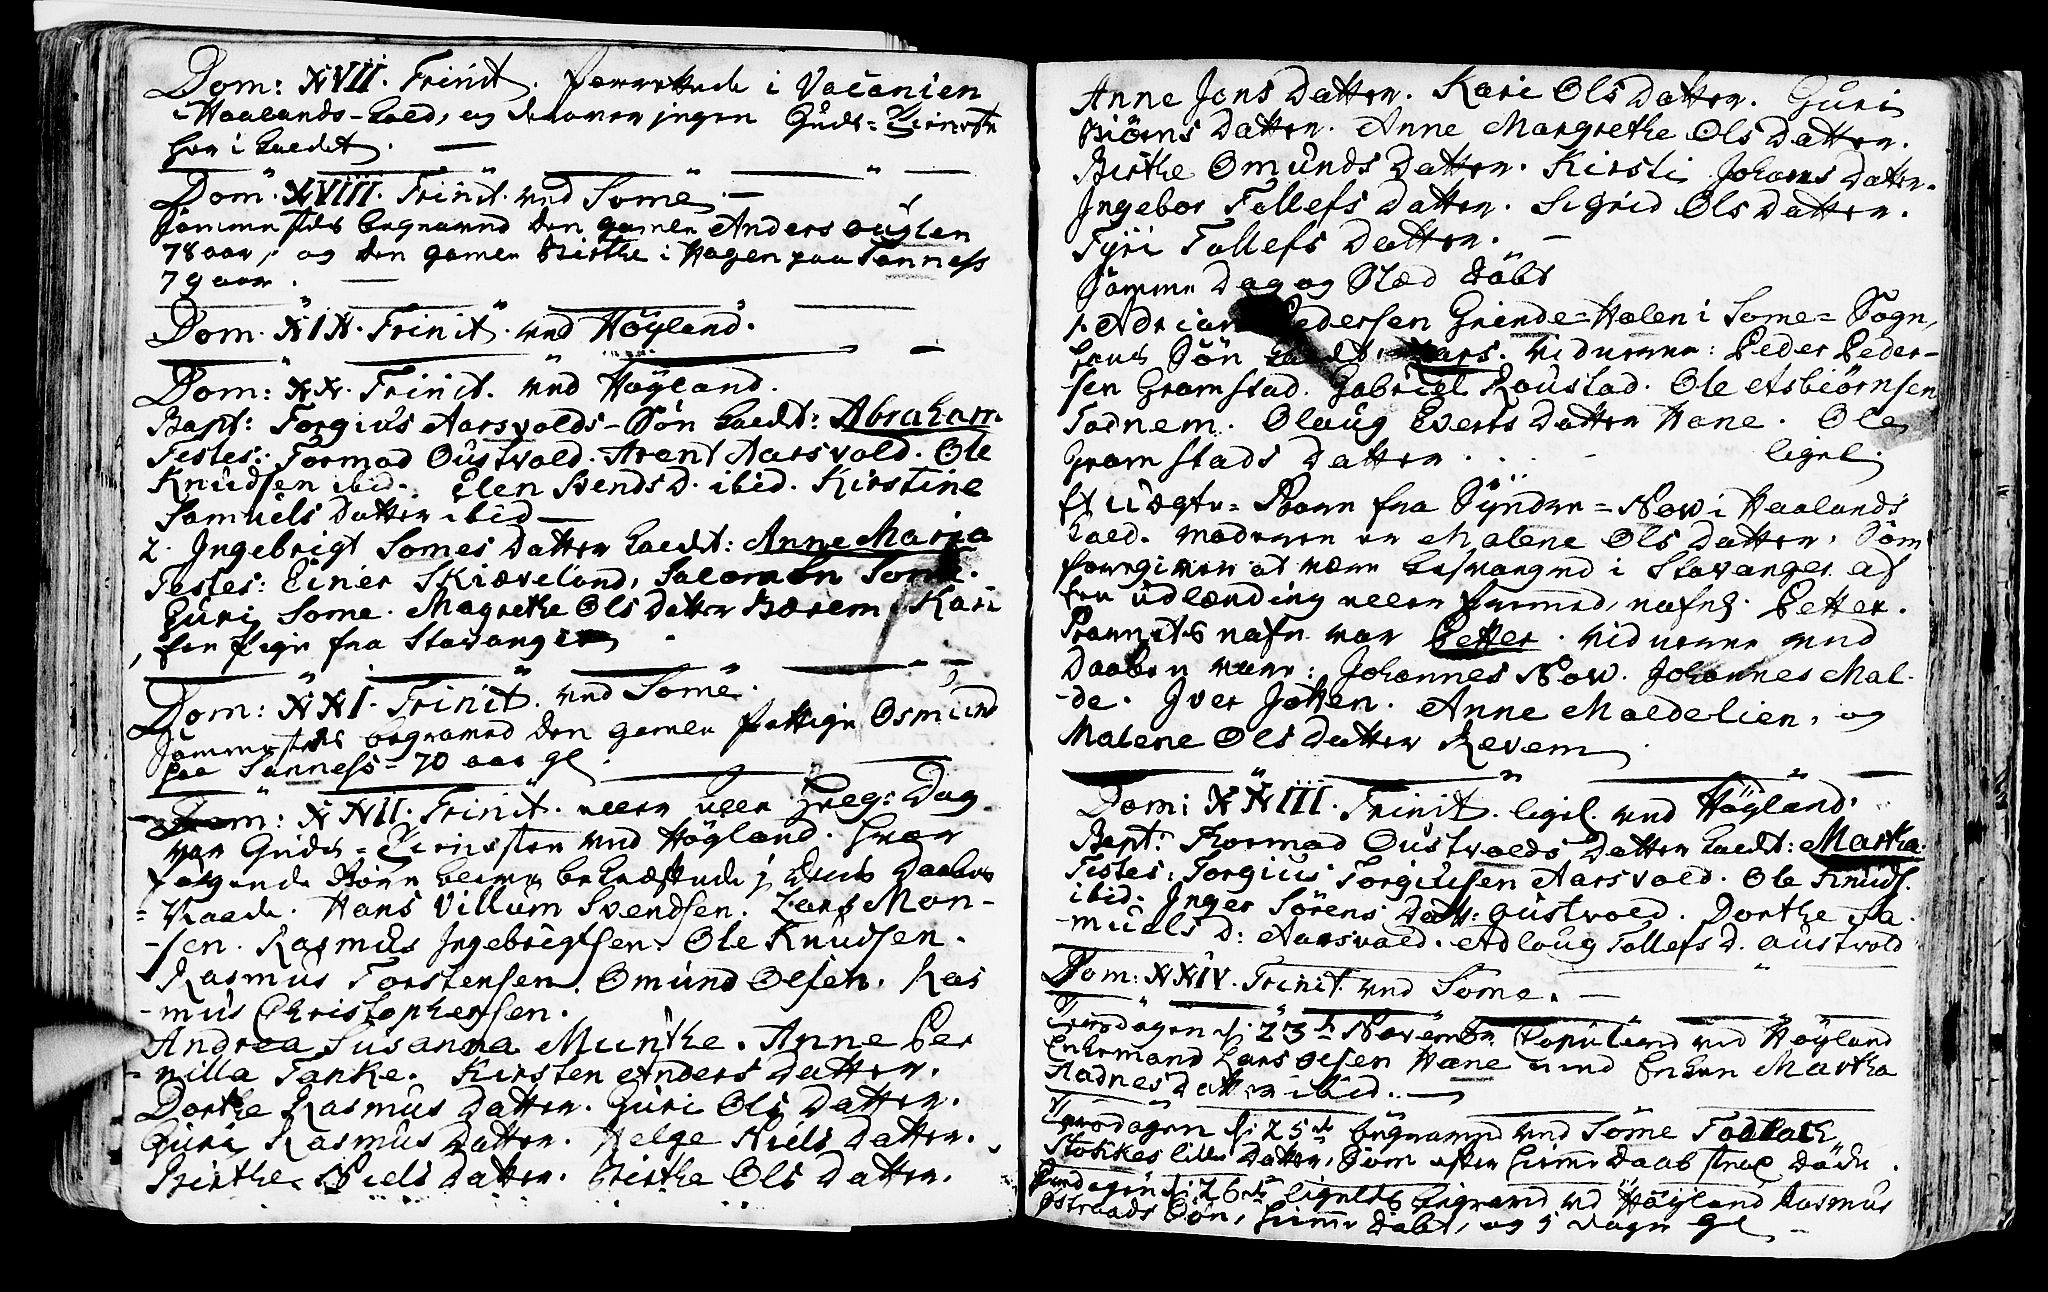 Dom: XVII. Trinit. forrettede i Vacanien
i Haalands-Kald, og derover ingen Guds-Tieneste
her i Kaldet. —
Dom. XVIII. Trinit. ved Some. —
Samme stæds begraved den gamle Anders
78 aar, og den gamle Birthe i Hagen paa Sanness
79 aar. —
Dom. XIX. Trinit. ved Höyland.
Dom: XX. Trinit. ved Höyland.
Bapt: Torgius Aarsvolds-Sön kaldt: Abraham.
Testes: Tormod Oustvold. Arent Aarsvold. Ole
Knudsen ibid. Elen Svends D. ibid. Kirstine
Samuels Datter ibid —
2. Ingebrigt Somes Datter kaldt: Anne Maria
Testes: Einer Skiæveland, Salomon Some.
Guri Some. Magrethe Ols Datter Bærem. Kari
en Pige fra Stavanger
Dom: XXI. Trinit. ved Some.
Samme stæds begraved den gamle fattige Osmund
paa Sanness - 70 aar gl.
Dom: XXII. Trinit. eller Greg: Dag
var Guds-Tienesten ved Höyland. hvor
fölgende Börn bleve bekræftede i deres Daabes
-Naade. Hans Villum Svendsen. Lars Mon-
-sen. Rasmus Ingebrigtsen. Ole Knudsen.
Rasmus Torstensen. Omund Olsen. Ras
-mus Christophersen.
Andrea Susanna Munthe. Anne Per
-nilla Tanke. Kirsten Anders Datter.
Dorthe Rasmus Datter. Guri Ols Datter.
Guri Rasmus Datter. Helge Niels Datter.
Birthe Niels Datter. Birthe Ols Datter.
Anne Jons Datter. Kari Ols Datter. Guri
Biörns Datter. Anne Margrethe Ols Datter.
Birthe Omunds Datter. Kirsti Johans Datter.
Ingebor Tollefs Datter. Sigrid Ols Datter.
Tyri Tollefs Datter. —
Samme Dag og Stæd döbt
1. Adrian Pedersen Grinde-Halen i Some-Sogn,
hans Sön kaldt Lars. Vidnerne: Peder Peder-
sen Gramstad. Gabriel Roustad. Ole Asbiörnsen
Todnem. Olaug Everts Datter Hane. Ole
Gramstads Datter . . . ligel.
Et uægte-Barn fra Söndre-Now i Haalands
Kald. Moderen er Malene Ols Datter, som
foregiver at være besvangred i Stavanger af
en udlænding eller fremmed, nafnl. Petter.
Barnets nafn var Petter. Vidnerne ved
Daaben vare: Johannes Now. Johannes Mal-
-de. Iver Jotten. Anne Maedelien, og
Malene Ols Datter Revem
Dom: XXIII. Trinit. ligel. ved Höyland.
Bapt: Thormod Oustvolds Datter kaldt: Martha.
Testes: Torgius Torgiusen Aarsvold. Ole Knuds.
ibid. Inger Sörens Datt: Oustvold. Dorthe Sa-
-muels D: Aarsvold. Adloug Tollefs D. Oustvold
Dom: XXIV. Trinit. ved Some. —
Tirsdagen d. 23de November Copulered ved Höyland
Enkemand Lars Olsen Hane med Enken Martha
Aadnes Datter ibid. —
Torsdagen d. 25de begraved ved Some Todlach
Stokkes lille Datter, som efter hiemme Daab strax döde.
Fredagen d. 26de ligeledes begraved ved Höyland Rasmus
Östraads Sön, hiemme döbt, og 5 dage gl —